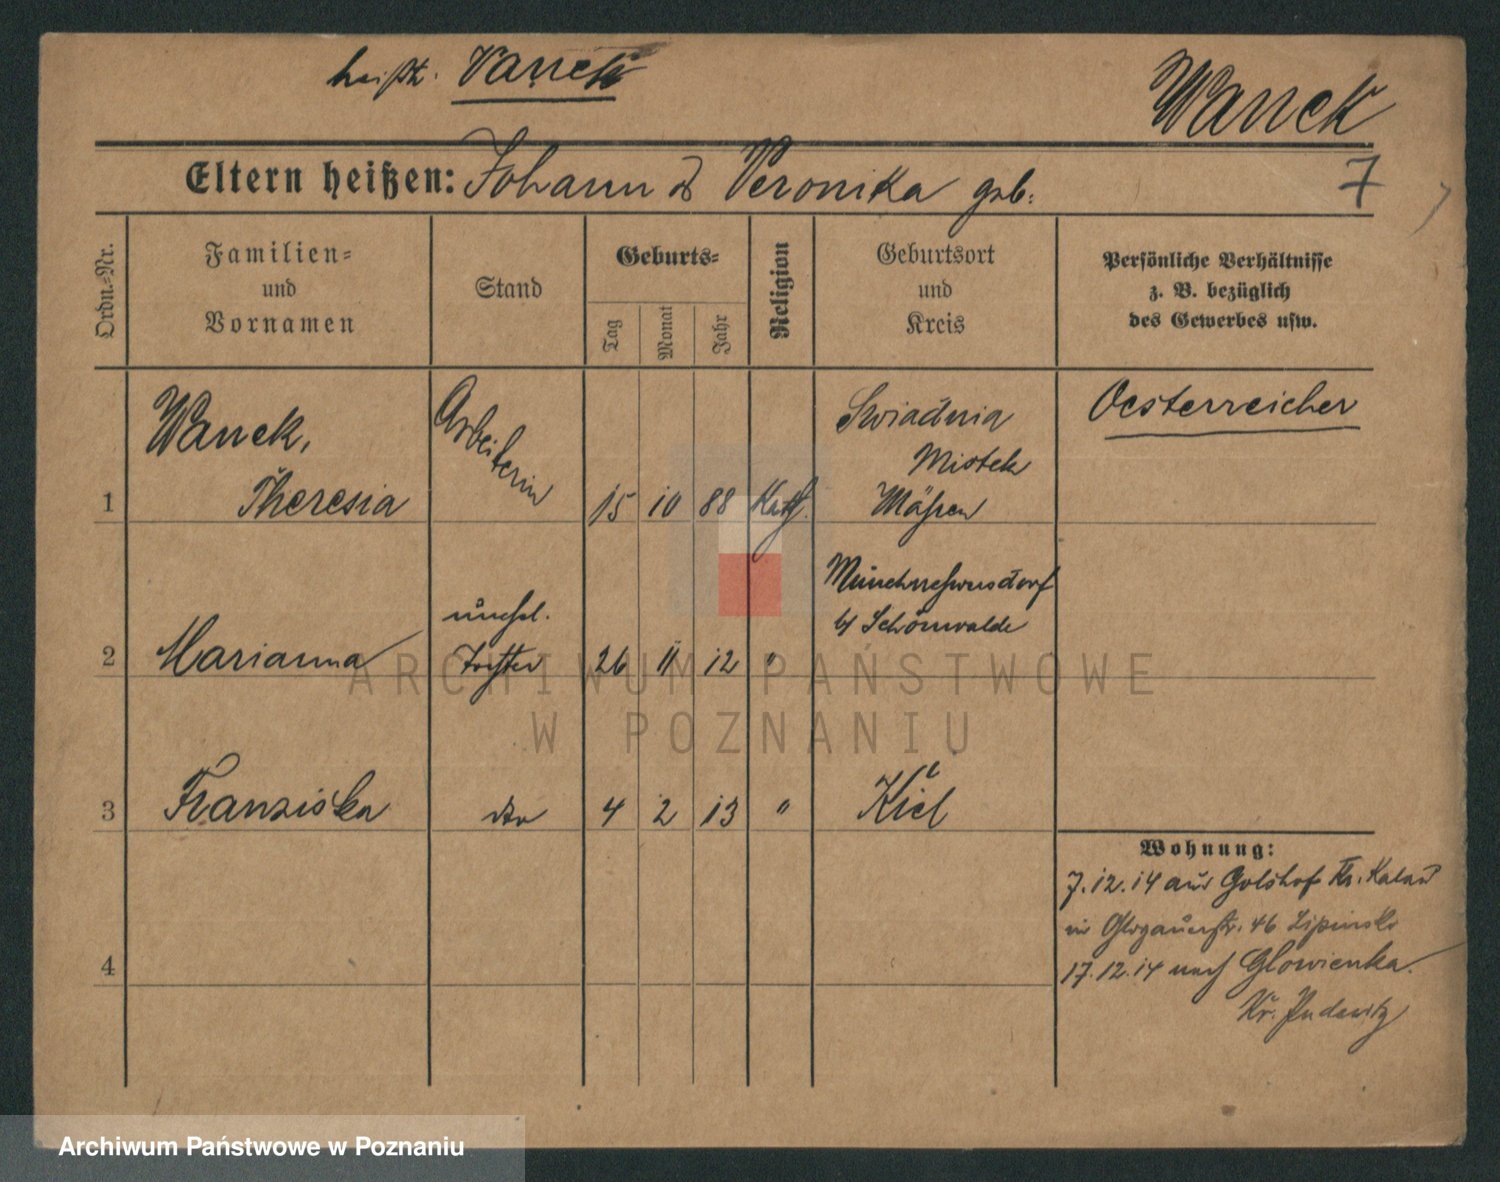 heißt. Vanek
Wanek
Eltern heißen: Johann & Veronika geb:
7
Ordn.-Nr.
Familien-
und
Vornamen
Stand
Geburts-
Tag
Monat
Jahr
Religion
Geburtsort
und
Kreis
Persönliche Verhältnisse
z. B. bezüglich
des Gewerbes usw.
1
Wanek,
Theresia
Arbeiterin
15 10 88 Kath.
Swiadnia
Mistek
Mähren
Oesterreicher
2
Marianna
unehel.
Tochter
26 11 12 "
b/ Schönwalde
3
Franziska
dto
4 2 13 "
Kiel
Wohnung:
7.12.14 aus Golshof Kr. Kalau
in Glogauerstr. 46 Lipinski
17.12.14 nach Glowienka.
Kr. Pudewitz
4
ARCHIWUM PAŃSTWOWE
W POZNANIU
Archiwum Państwowe w Poznaniu